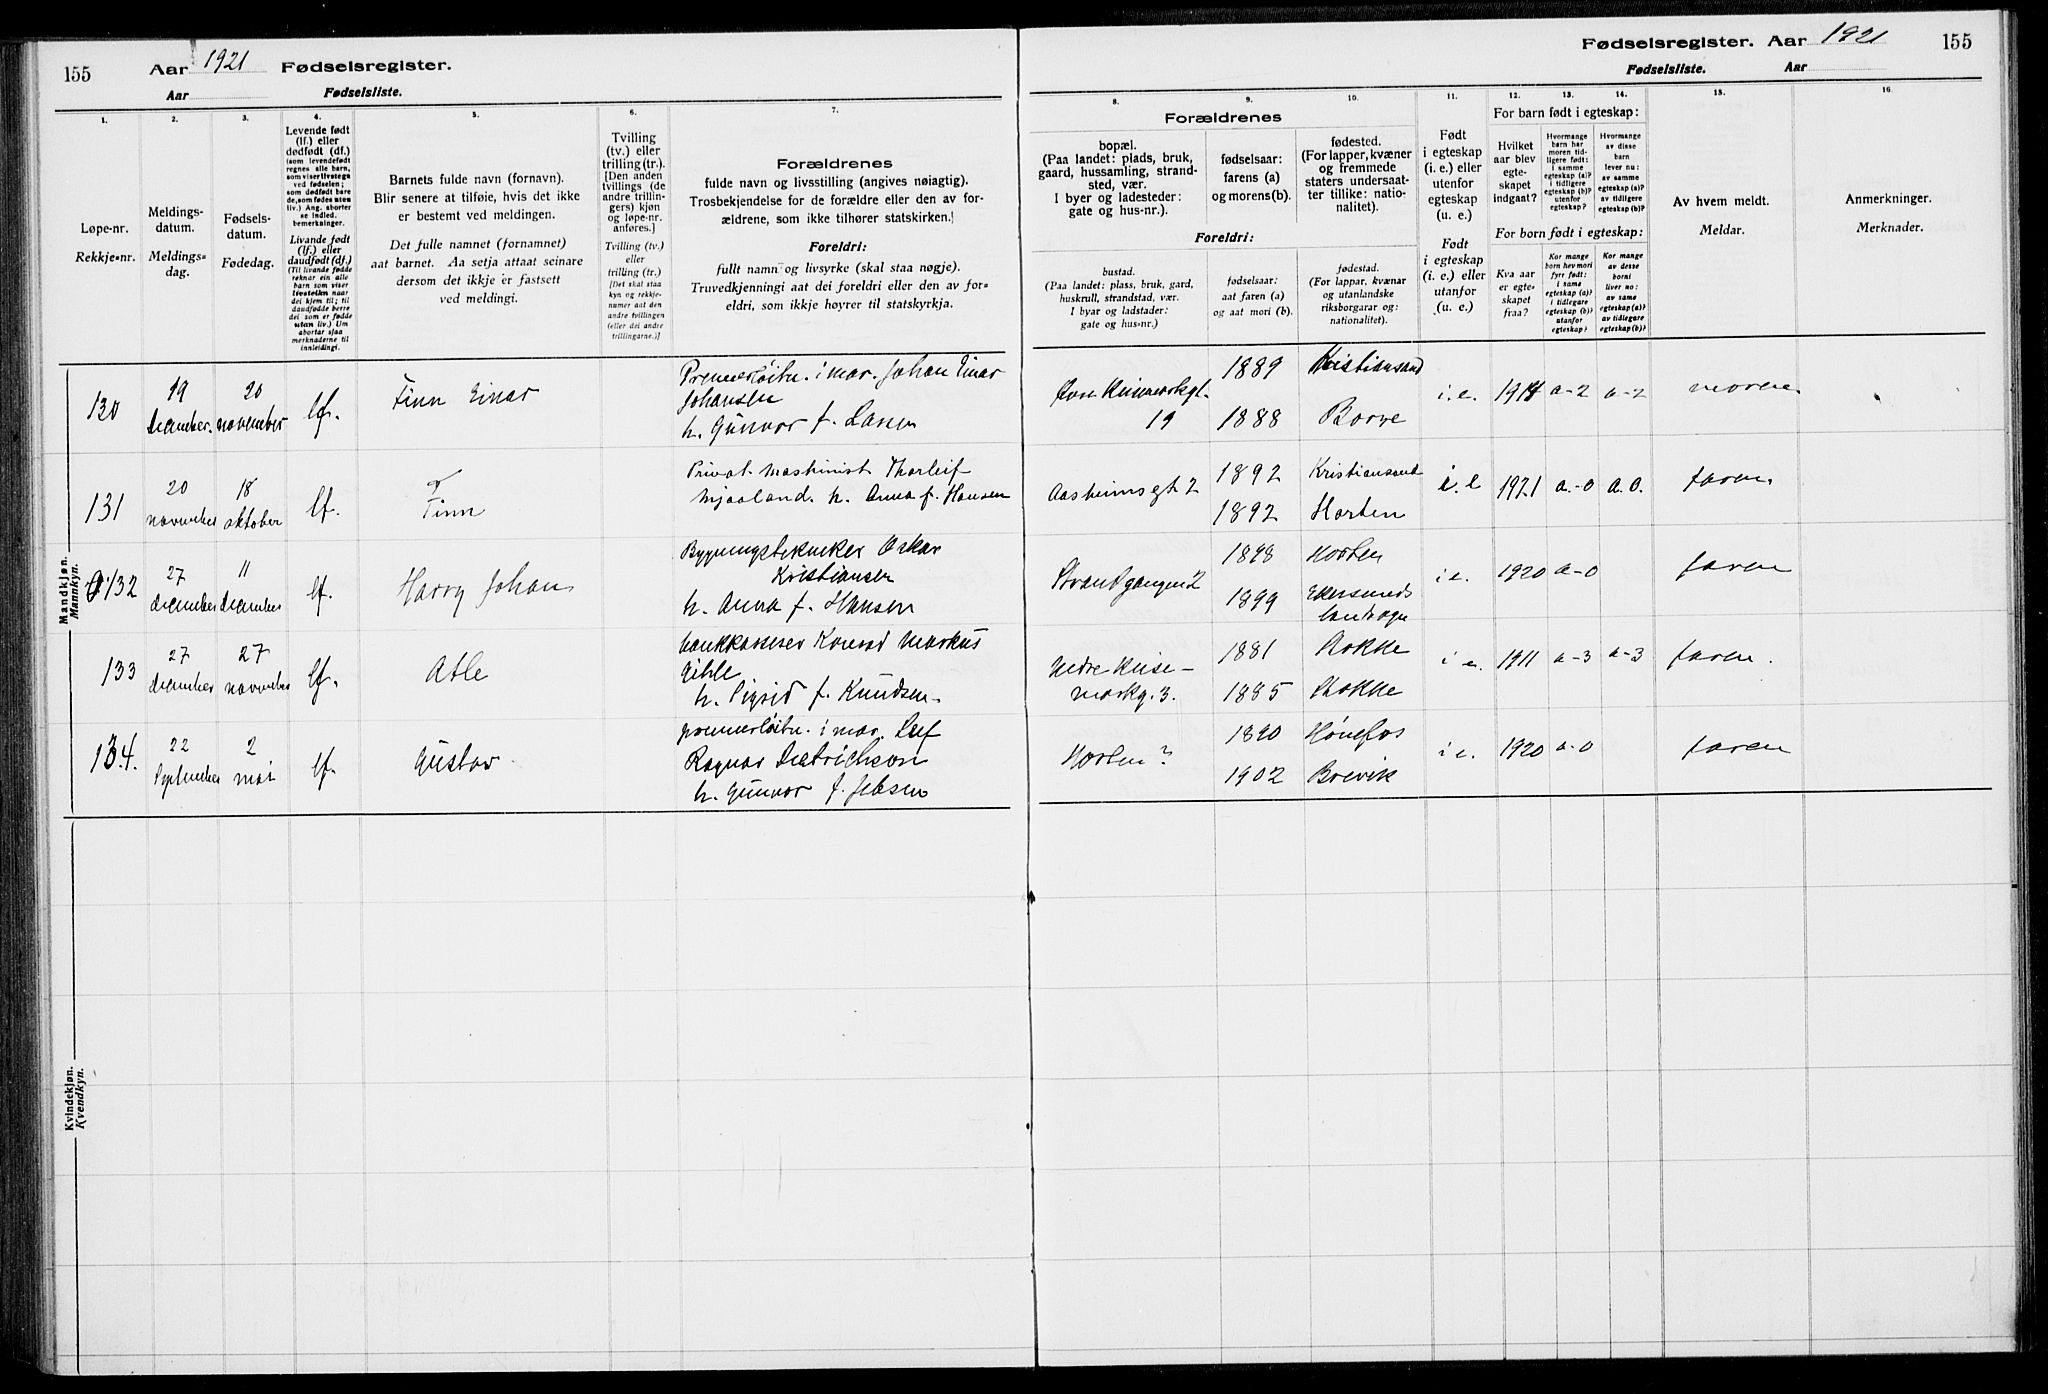 155 Aar 1921 Fødselsregister.
Aar Fødselsliste.
Fødselsregister. Aar 1921 155
Fødselsliste. Aar
1.
Løpe-nr.
Rekkje-nr.
2.
Meldings-
datum.
Meldings-
dag.
3.
Fødsels-
datum.
Fødedag.
4.
Levende født
(lf.) eller
dødfødt (df.)
(som levendefødt
regnes alle barn,
som viser livstegn
ved fødselen;
som dødfødt bare
de, som fødes uten
liv.) Ang. aborter
se indled.
bemerkninger.
Livande født
(lf.) eller
daudfødt (df.)
(Til livande fødde
reknar ein alle
barn som viser
livsteikn naar
dei kjem til; til
daudfødde berre
dei som er fødde
utan liv.) Um
abortar sjaa
merknaderne til
innleidingi.
5.
Barnets fulde navn (fornavn).
Blir senere at tilføie, hvis det ikke
er bestemt ved meldingen.
Det fulle namnet (fornamnet)
aat barnet. Aa setja attaat seinare
dersom det ikkje er fastsett
ved meldingi.
6.
Tvilling
(tv.) eller
trilling (tr.).
[Den anden
tvillings (de
andre trillin-
gers) kjøn
og løpe-nr.
anføres.]
Tvilling (tv.)
eller
trilling (tr.)
[Det skal staa
kyn og rekkje-
numer aat den
andre tvillingen
(eller dei andre
trillingarne.)]
7.
Forældrenes
fulde navn og livsstilling (angives nøiagtig).
Trosbekjendelse for de forældre eller den av for-
ældrene, som ikke tilhører statskirken.
Foreldri:
fullt namn og livsyrke (skal staa nøgje).
Truvedkjenningi aat dei foreldri eller den av for-
eldri, som ikkje høyrer til statskyrkja.
Forældrenes
8.
bopæl.
(Paa landet: plads, bruk,
gaard, hussamling, strand-
sted, vær.
I byer og ladesteder:
gate og hus-nr.).
9.
fødselsaar:
farens (a)
og morens (b).
10.
fødested.
(For lapper, kvæner
og fremmede
staters undersaat-
ter tillike: natio-
nalitet).
Foreldri:
bustad.
(Paa landet: plass, bruk, gard,
huskrull, strandstad, vær.
I byar og ladstader:
gate og hus-nr.)
fødselsaar:
aat faren (a)
og aat mori (b).
fødestad.
(For lappar, kvænar
og utanlandske
riksborgarar og:
nationalitet).
11.
Født
i egteskap
(i. e.) eller
utenfor
egteskap
(u. e.)
Født
i egteskap
(i. e.) eller
utanfor
(u. e.)
For barn født i egteskap:
12.
Hvilket
aar blev
egte-
skapet
indgaat?
13.
Hvormange
barn har
moren tid-
ligere født:
i samme
egteskap (a)?
i tidligere
egteskap (b)?
utenfor
egteskap?
14.
Hvormange
av disse
barn
lever nu:
av samme
egteskap (a)?
av tidligere
egteskap (b)?
For born født i egteskap:
Kva aar
er egte-
skapet
fraa?
Kor mange
born hev mori
fyrr født:
i same
egteskap (a)?
i tidlegare
egteskap (b)?
utanfor
egteskap?
Kor mange
av desse
borni
liver no:
av same
egteskap (a)?
av tidlegare
egteskap (b)?
15.
Av hvem meldt.
Meldar.
16.
Anmerkninger.
Merknader.
Mandkjøn.
Mannkyn.
130 19 december. 20 november lf. Finn Einar
Premierløitn. i mar. Johan Einar
Johansen
h. Gunvor f. Larsen
19
1889 Kristiansand
1888 Borre
i. e. 1914 a-2 a-2 moren
131 20 november 18 oktober lf. Finn
Privat. maskinist Thorleif
Mjaaland. h. Anna f. Hansen
Aasheimsgt 2
1892 Kristiansand
1892 Horten
i. e 1921 a.-0 a.0. faren.
132 27 december 11 december lf. Harry Johan
Bygningstekniker Oskar
Kristiansen
h. Anna f. Hansen
Strandgangen 2
1898 Horten
1899 Ekersunds
landsogn
i e. 1920 a-0 faren
133 27 december 27 november lf. Atle
bankkasserer Konrad Markus
Gihle
h. Sigrid f. Knudsen.
Nedre Keise-
markg. 3.
1881 Stokke
1885 Stokke
i e. 1911 a-3 a-3 faren.
134. 22 September 2 mai lf. Gustav
premierløitn. i mar. Leif
Ragnar Dietrichson
h. Gunvor f. Jebsen
Horten?
1890 Hønefos
1902 Brevik
i e. 1920 a-0 faren
Kvindekjøn.
Kvendkyn.